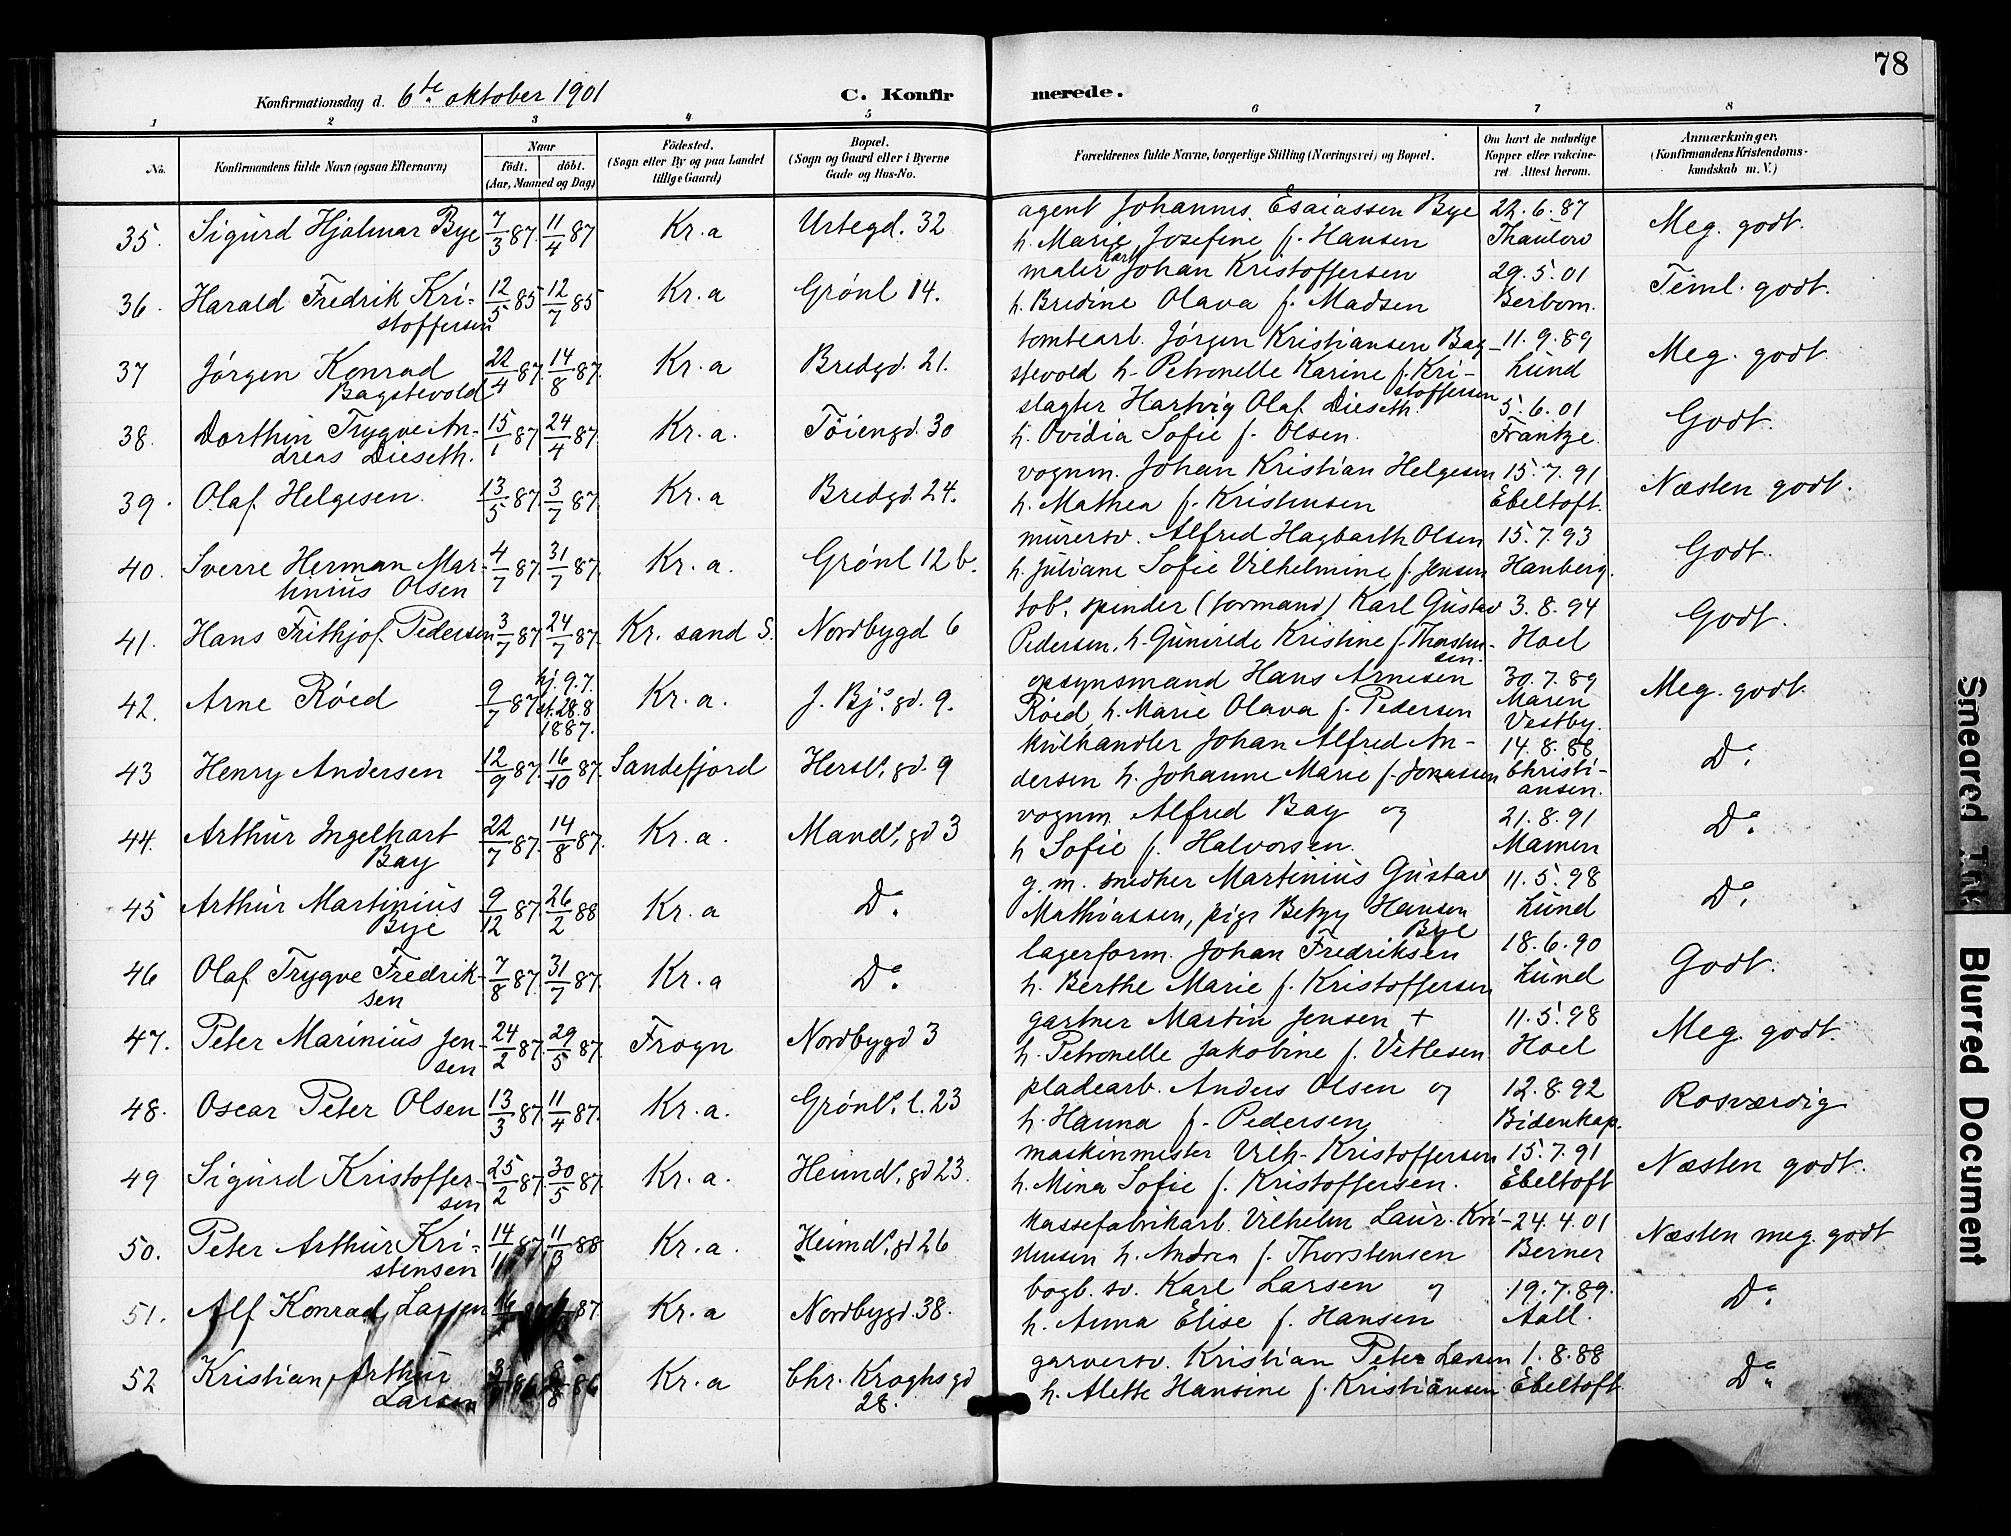 78
Konfirmationsdag d. 6te oktober 1901
C. Konfirmerede.
1 2 3 4 5 6 7 8
No.
Konfirmandens fulde Navn (ogsaa Efternavn)
Naar
født. døbt.
(Aar, Maaned og Dag)
Fødested.
(Sogn eller By og paa Landet
tillige Gaard)
Bopæl.
(Sogn og Gaard eller i Byerne
Gade og Hus-No.
Forældrenes fulde Navne, borgerlige Stilling (Næringsvei) og Bopæl.
Om havt de naturlige
Kopper eller vakcine-
ret. Attest herom.
Anmærkninger.
(Konfirmandens Kristendoms-
kundskab m. V.)
35. Sigurd Hjalmar Bye 7/3 87. 11/4 87 Kr.a Urtegd. 32 agent Johannes Esaiassen Bye 22.6.87 Meg. godt.
h. Marie Josefine f. Hansen Thaulow
36. Harald Fredrik Kri- 12/5 85 12/7 85 Kr.a Grønl 14. maler Karl Johan Kristoffersen 29.5.01 Teml. godt.
stoffersen h. Bredine Olava f. Madsen Berbom.
37 Jørgen Konrad 22/4 87. 14/8 87. Kr.a Bredgd. 21. tomtearb. Jørgen Kristiansen Bag- 11.9.89 Meg. godt
Bagstevold stevold h. Petronelle Karine f. Kri- Lund
stoffersen
38. Dorthin Trygve An- 15/1 87 24/4 87. Kr.a. Tøiengd. 30 slagter Hartvig Olaf Dieseth. 5.6.01 Godt.
dreas Dieseth. h. Ovidia Sofie f. Olsen. Frantze.
39. Olaf Helgesen. 13/5 87. 3/7 87. Kr.a Bredgd. 24. vognm. Johan Kristian Helgesen 15.7.91 Næsten godt.
h. Mathea f. Kristensen Ebeltoft.
40. Sverre Herman Mar- 4/7 87. 31/7 87. Kr.a. Grønl 12 b. murersv. Alfred Hagbarth Olsen 15.7.93 Godt.
tinius Olsen h. Juliane Sofie Vilhelmine f. Jensen Hanberg.
41. Hans Frithjof Pedersen 3/7 87. 24/7 87. Kr. sand S. Nordbygd 6 tob. spinder (formand) Karl Gustav 3.8.94 Godt.
Pedersen, h. Kristine f. Thorsten- Hoel
sen.
42. Arne Røed 9/7 87 hj. 9.7. st. 28.8 1887. Kr.a. J. Bjs. gd. 9. opsynsmand Hans Arnesen 30.7.89 Meg. godt.
Røed, h. Marie Olava f. Pedersen Maren
Vestby.
43 Henry Andersen 12/9 87. 16/10 87. Sandefjord Hersl. gd. 9 kulhandler Johan Alfred An- 14.8.88 Do.
dersen h. Johanne Marie f. Jonassen Christi-
ansen.
44. Arthur Ingelhart 22/7 87. 14/8 87. Kr.a. Mandl. gd 3 vognm. Alfred Bay og 21.8.91 Do.
Bay h Sofie f. Halvorsen. Mamen
45 Arthur Martinius 9/12 87. 26/2 88 Kr.a Do. g. m. snedker Martinius Gustav 11.5.98 Do.
Bye Mathiassen, pige Betzy Hansen Lund
Bye
46 Olaf Trygve Fredrik- 7/8 87. 31/7 87. Kr.a Do. lagerform. Johan Fredriksen 18.6.90 Godt.
sen h. Berthe Marie f. Kristoffersen Lund
47. Peter Marinius Jen- 24/2 87. 29/5 87. Frogn Nordbygd 3 gartner Martin Jensen + 11.5.98 Meg. godt.
sen h. Petronelle Jakobine f. Vetlesen Hoel
48. Oscar Peter Olsen 13/3 87. 11/4 87. Kr.a. Grønls. l. 23 pladearb. Anders Olsen og 12.8.92 Rosværdig
h. Hanna f. Pedersen Bidenkap.
49 Sigurd Kristoffer- 25/2 87. 30/5 87. Kr.a. Heimd. gd 23. maskinmester Vilh. Kristoffersen 15.7.91 Næsten godt.
sen h. Mina Sofie f. Kristoffersen. Ebeltoft
50. Peter Arthur Kri- 14/11 87. 11/3 88 Kr.a. Heimd. gd 26 kassefabrikarb. Vilhelm Laur. Kri- 24.4.01 Næsten meg. godt
stensen stensen h. Andrea f. Thorstensen Berner
51. Alf Konrad Larsen 87 Kr.a Nordbygd. 38. bogb. sv. Karl Larsen og 19.7.89. Do.
h. Anna Elise f. Hansen Aall.
52 Kristian Arthur 86 86 Kr.a Chr. Kroghs gd garversv. Kristian Peter Larsen 1.8.88 Do.
Larsen 28. h. Alette Hansine f. Kristiansen Ebeltoft
Smeared Ink
Blurred Document